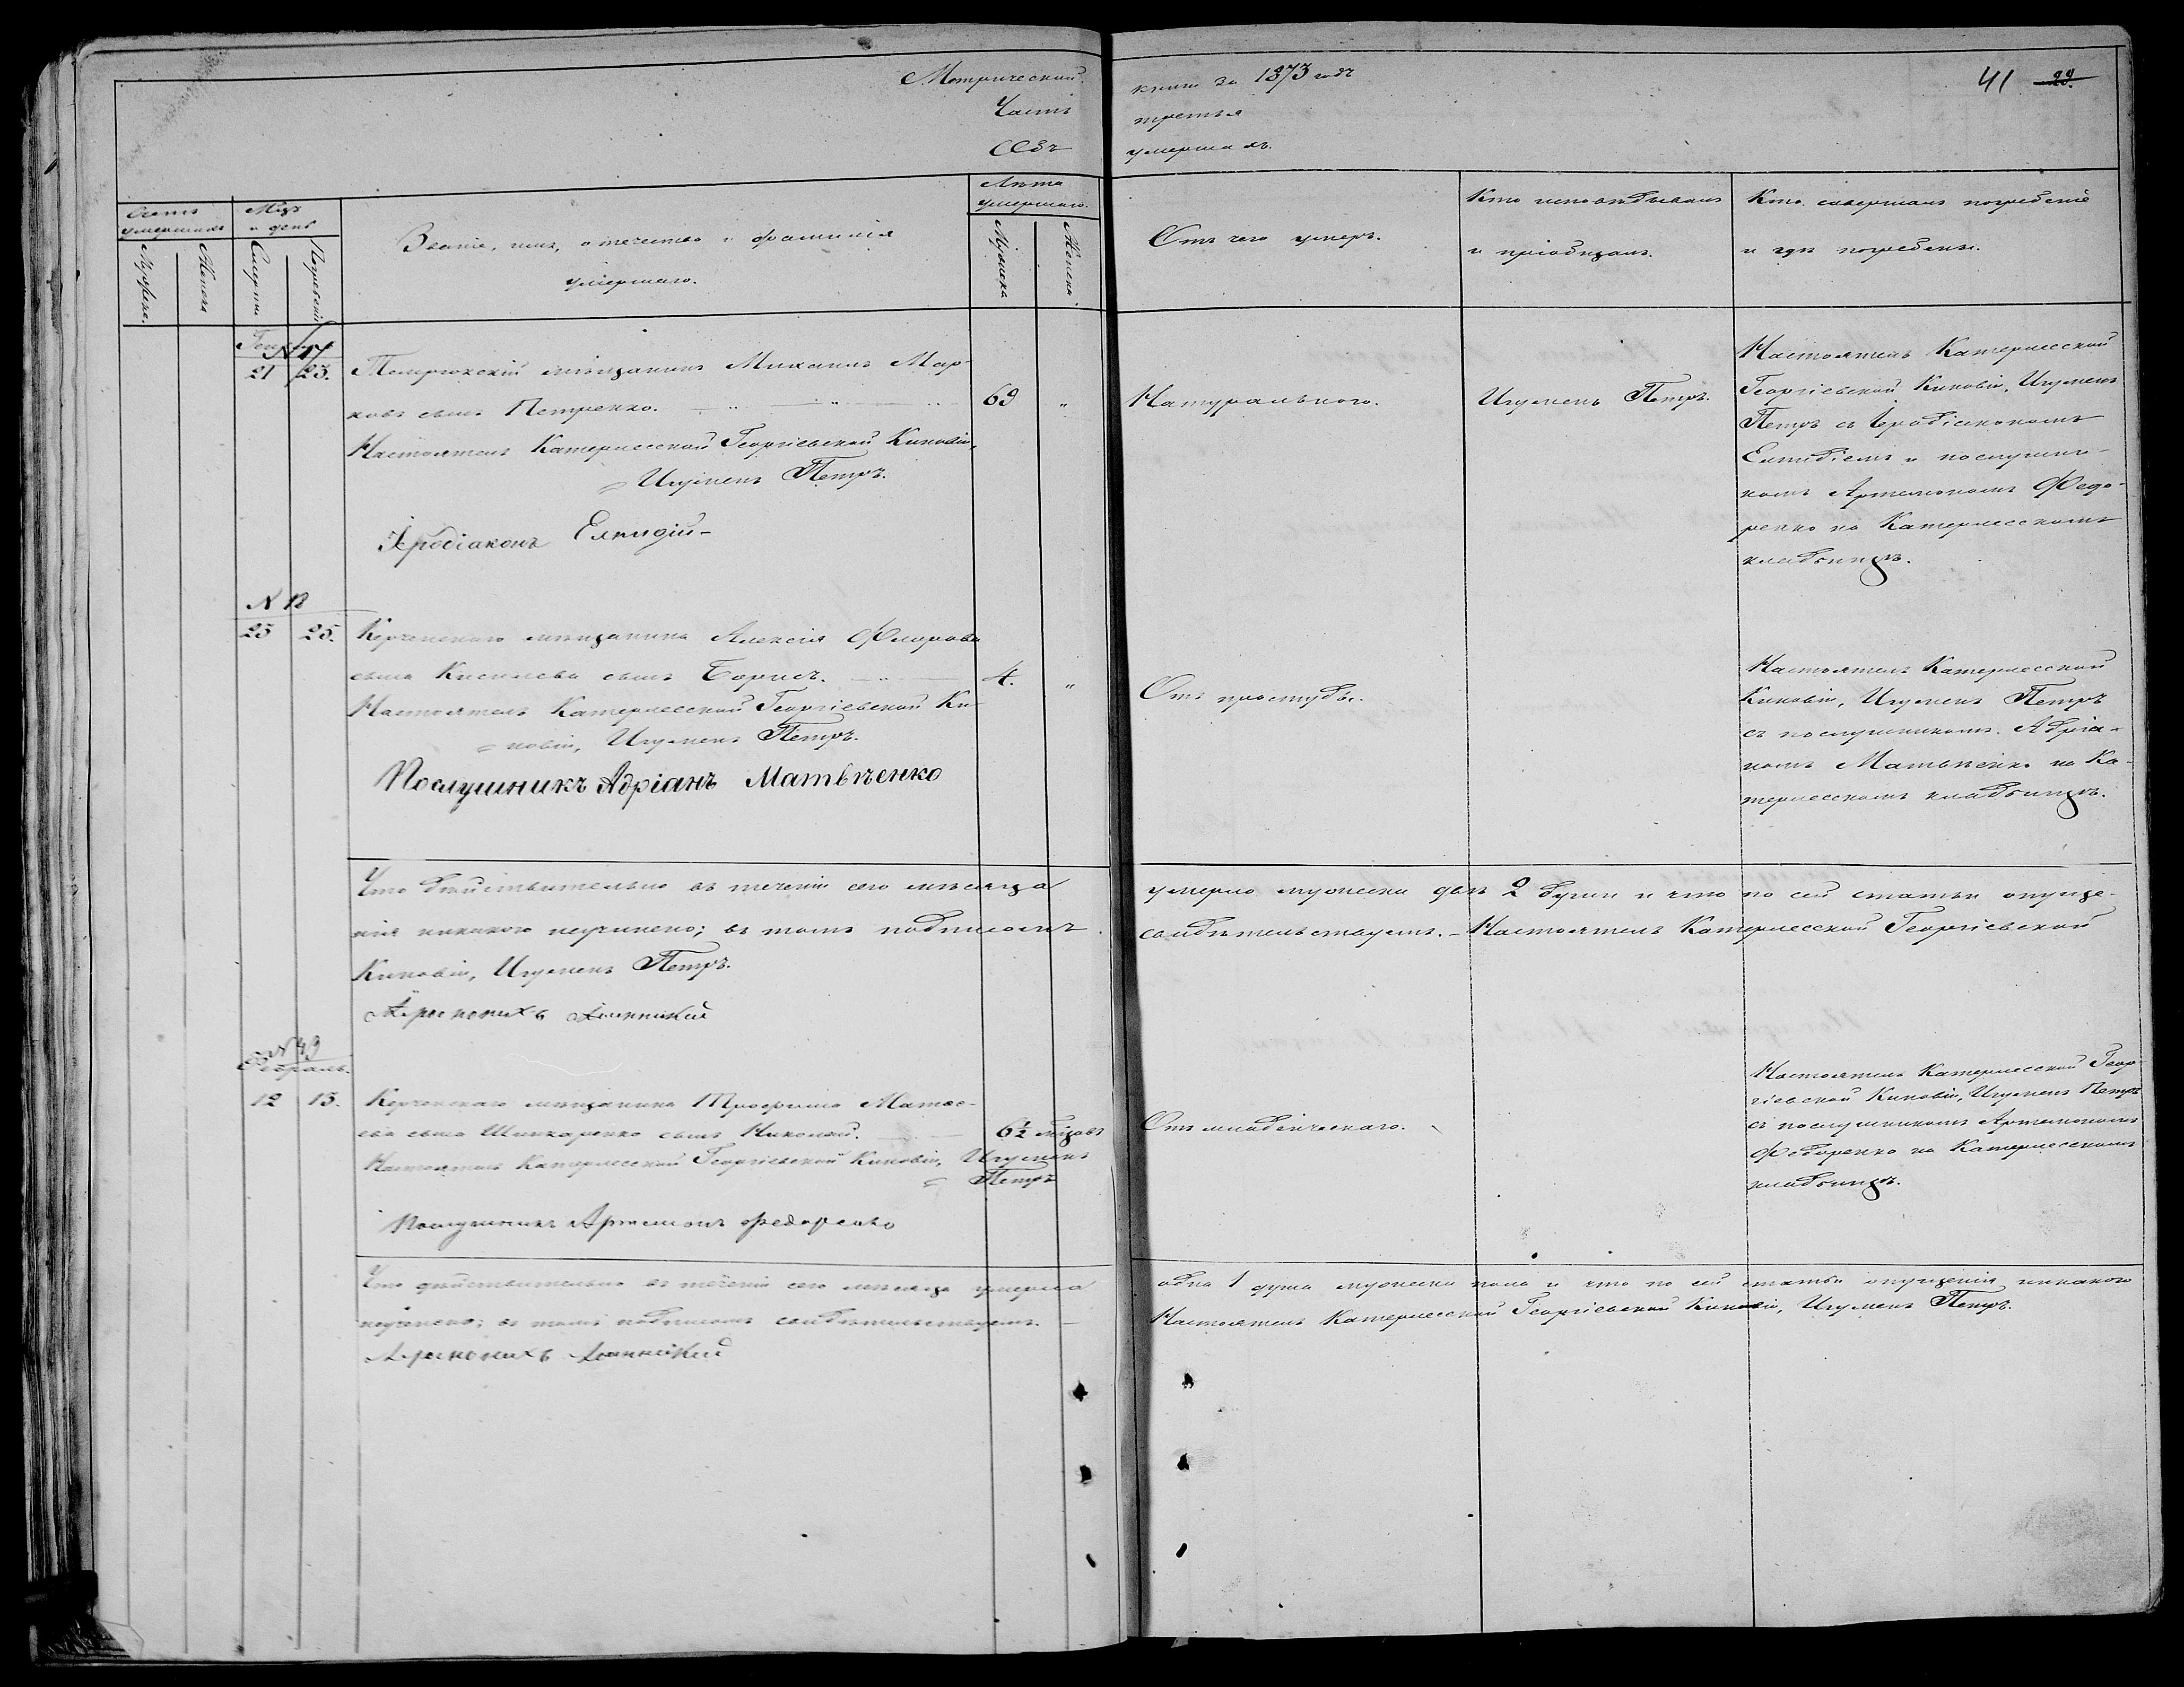 Метрической
Часть
объ
книги за 1873 годъ
третья
умершихъ.
41 29.
Счетъ умершихъ
Мужеска.
Женска
Мцъ и день
Смерти.
Погребенія
Званіе, имя, отечество и фамилія
умершаго.
Лѣта умершаго.
Мужеска
Женска.
Отъ чего умеръ.
Кто исповѣдывалъ
и пріобщалъ.
Кто совершалъ погребеніе
и гдѣ погребены.
N 17
21 23.
Темрюкскій мѣщанинъ Михаилъ Мар-
ковъ сынъ Петренко.
69 "
Настоятель Катерлесской Георгіевской Киновіи,
Игуменъ Петръ.
Іеродіаконъ Елпидій
Натуральною.
Игуменъ Петръ.
Настоятель Катерлесской
Георгіевской Киновіи, Игуменъ
Петръ съ Іеродіакономъ
Елпидіемъ и послушни-
комъ Артемономъ Федо-
ренко на Катерлесскомъ
кладбищѣ.
N 18
23 25.
Керченскаго мѣщанина Алексія Флорова
сына Киселева сынъ Борисъ.
4. "
Настоятель Катерлесской Георгіевской Ки-
новіи, Игуменъ Петръ.
Послушникъ Адріанъ Матвѣенко
Отъ простуды.
Настоятель Катерлесской
Киновіи, Игуменъ Петръ
съ послушникомъ Адріа-
номъ Матвѣенко на Ка-
терлесскомъ кладбищѣ.
Что дѣйствительно въ теченіи сего мѣсяца
умерло мужеска двѣ 2 души и что по сей статьи опуще-
нія никакого неучинено; въ томъ подписомъ
свидѣтельствуемъ. - Настоятель Катерлесской Георгіевской
Киновіи, Игуменъ Петръ.
Іеромонахъ Іоанникій
N 19
Февраль.
12 13.
Керченскаго мѣщанина Трофима Матвѣ-
ева сына Шинкаренко сынъ Николай.
6½ мѣцовъ
Настоятель Катерлесской Георгіевской Киновіи, Игуменъ
Петръ
Послушникъ Артемонъ Федоренко
Отъ младенческаго.
Настоятель Катерлесской Геор-
гіевской Киновіи, Игуменъ Петръ
съ послушникомъ Артемономъ
Федоренко на Катерлесскомъ
кладбищѣ.
Что дѣйствительно въ теченіи сего мѣсяца умерла
одна 1 душа мужеска пола и что по сей статьи опущенія никакого
неучинено; въ томъ подписомъ свидѣтельствуемъ. -
Настоятель Катерлесской Георгіевской Киновіи, Игуменъ Петръ.
Іеромонахъ Іоанникій